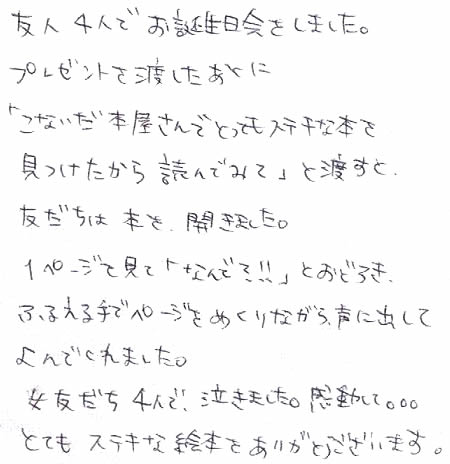 友人4人でお誕生日会をしました。
プレゼントを渡したあとに
「こないだ本屋さんでとってもステキな本を
見つけたから読んでみて」と渡すと、
友だちは本を、開きました。
1ページを見て「なんで?!!」とおどろき、
ふるえる手でページをめくりながら、声に出して
よんでくれました。
女友だち4人で、泣きました。感動して。。。
とてもステキな絵本をありがとうございます。